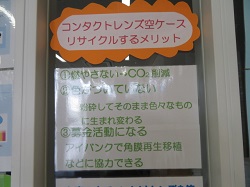 コンタクトレンズ空ケース
リサイクルするメリット
①燃やさない→CO₂削減
②色がついていない
粉砕してそのまま色々なもの
に生まれ変わる
③募金活動になる
アイバンクで角膜再生移植
などに協力できる